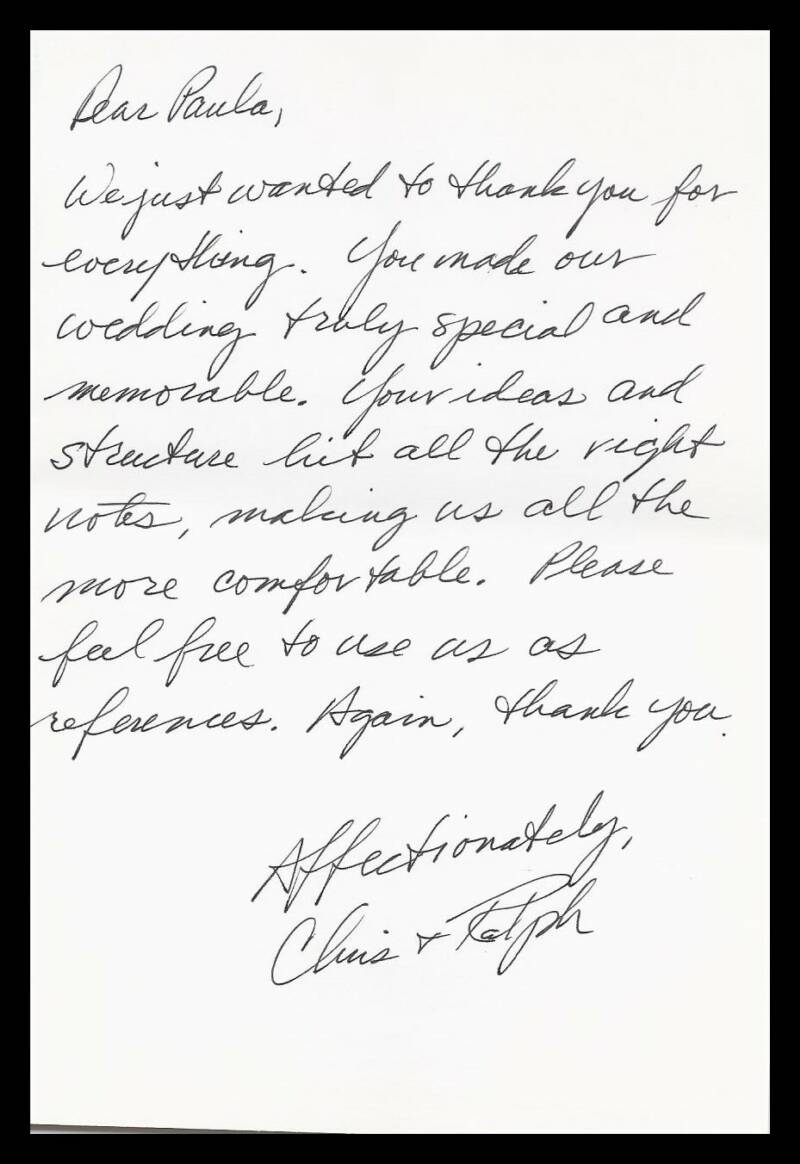 Dear Paula,
We just wanted to thank you for
everything. You made our
wedding truly special and
memorable. Your ideas and
structure hit all the right
notes, making us all the
more comfortable. Please
feel free to use us as
references. Again, thank you.
Affectionately,
Chris + Ralph